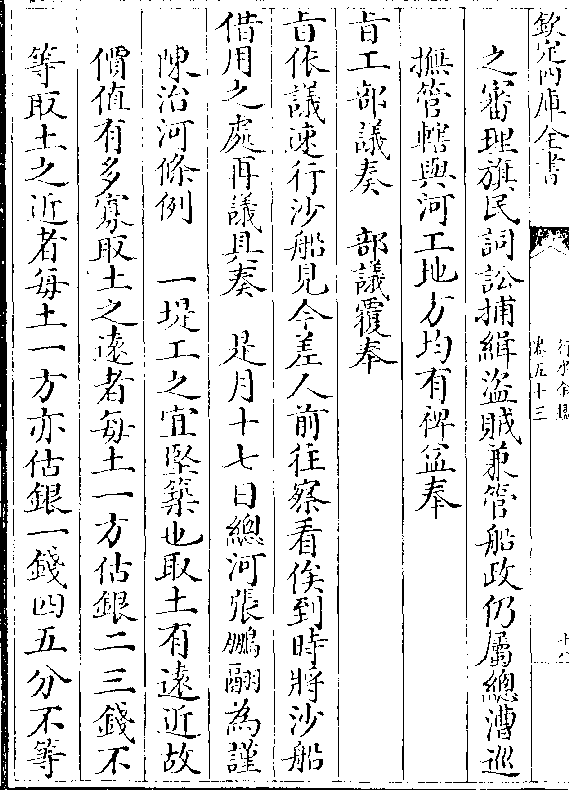 欽定四庫全書
行水金鑑
卷五十三
之審理旗民詞訟捕緝盜賊兼管船政仍屬總漕巡
撫管轄與河工地方均有裨益奉
旨工部議奏　部議覆奉
旨依議速行沙船見今差人前往察看俟到時將沙船
借用之處再議具奏　是月十七日總河張鵬翮為謹
陳治河條例　一堤工之宜堅築也取土有遠近故
價值有多寡取土之遠者每土一方估銀二三錢不
等取土之近者每土一方亦估銀一錢四五分不等